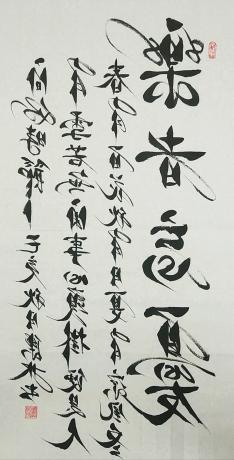 樂者忘憂
春有百花秋有月夏有涼風冬
有雪若無閒事心頭掛便是人
間好時節 己亥秋月